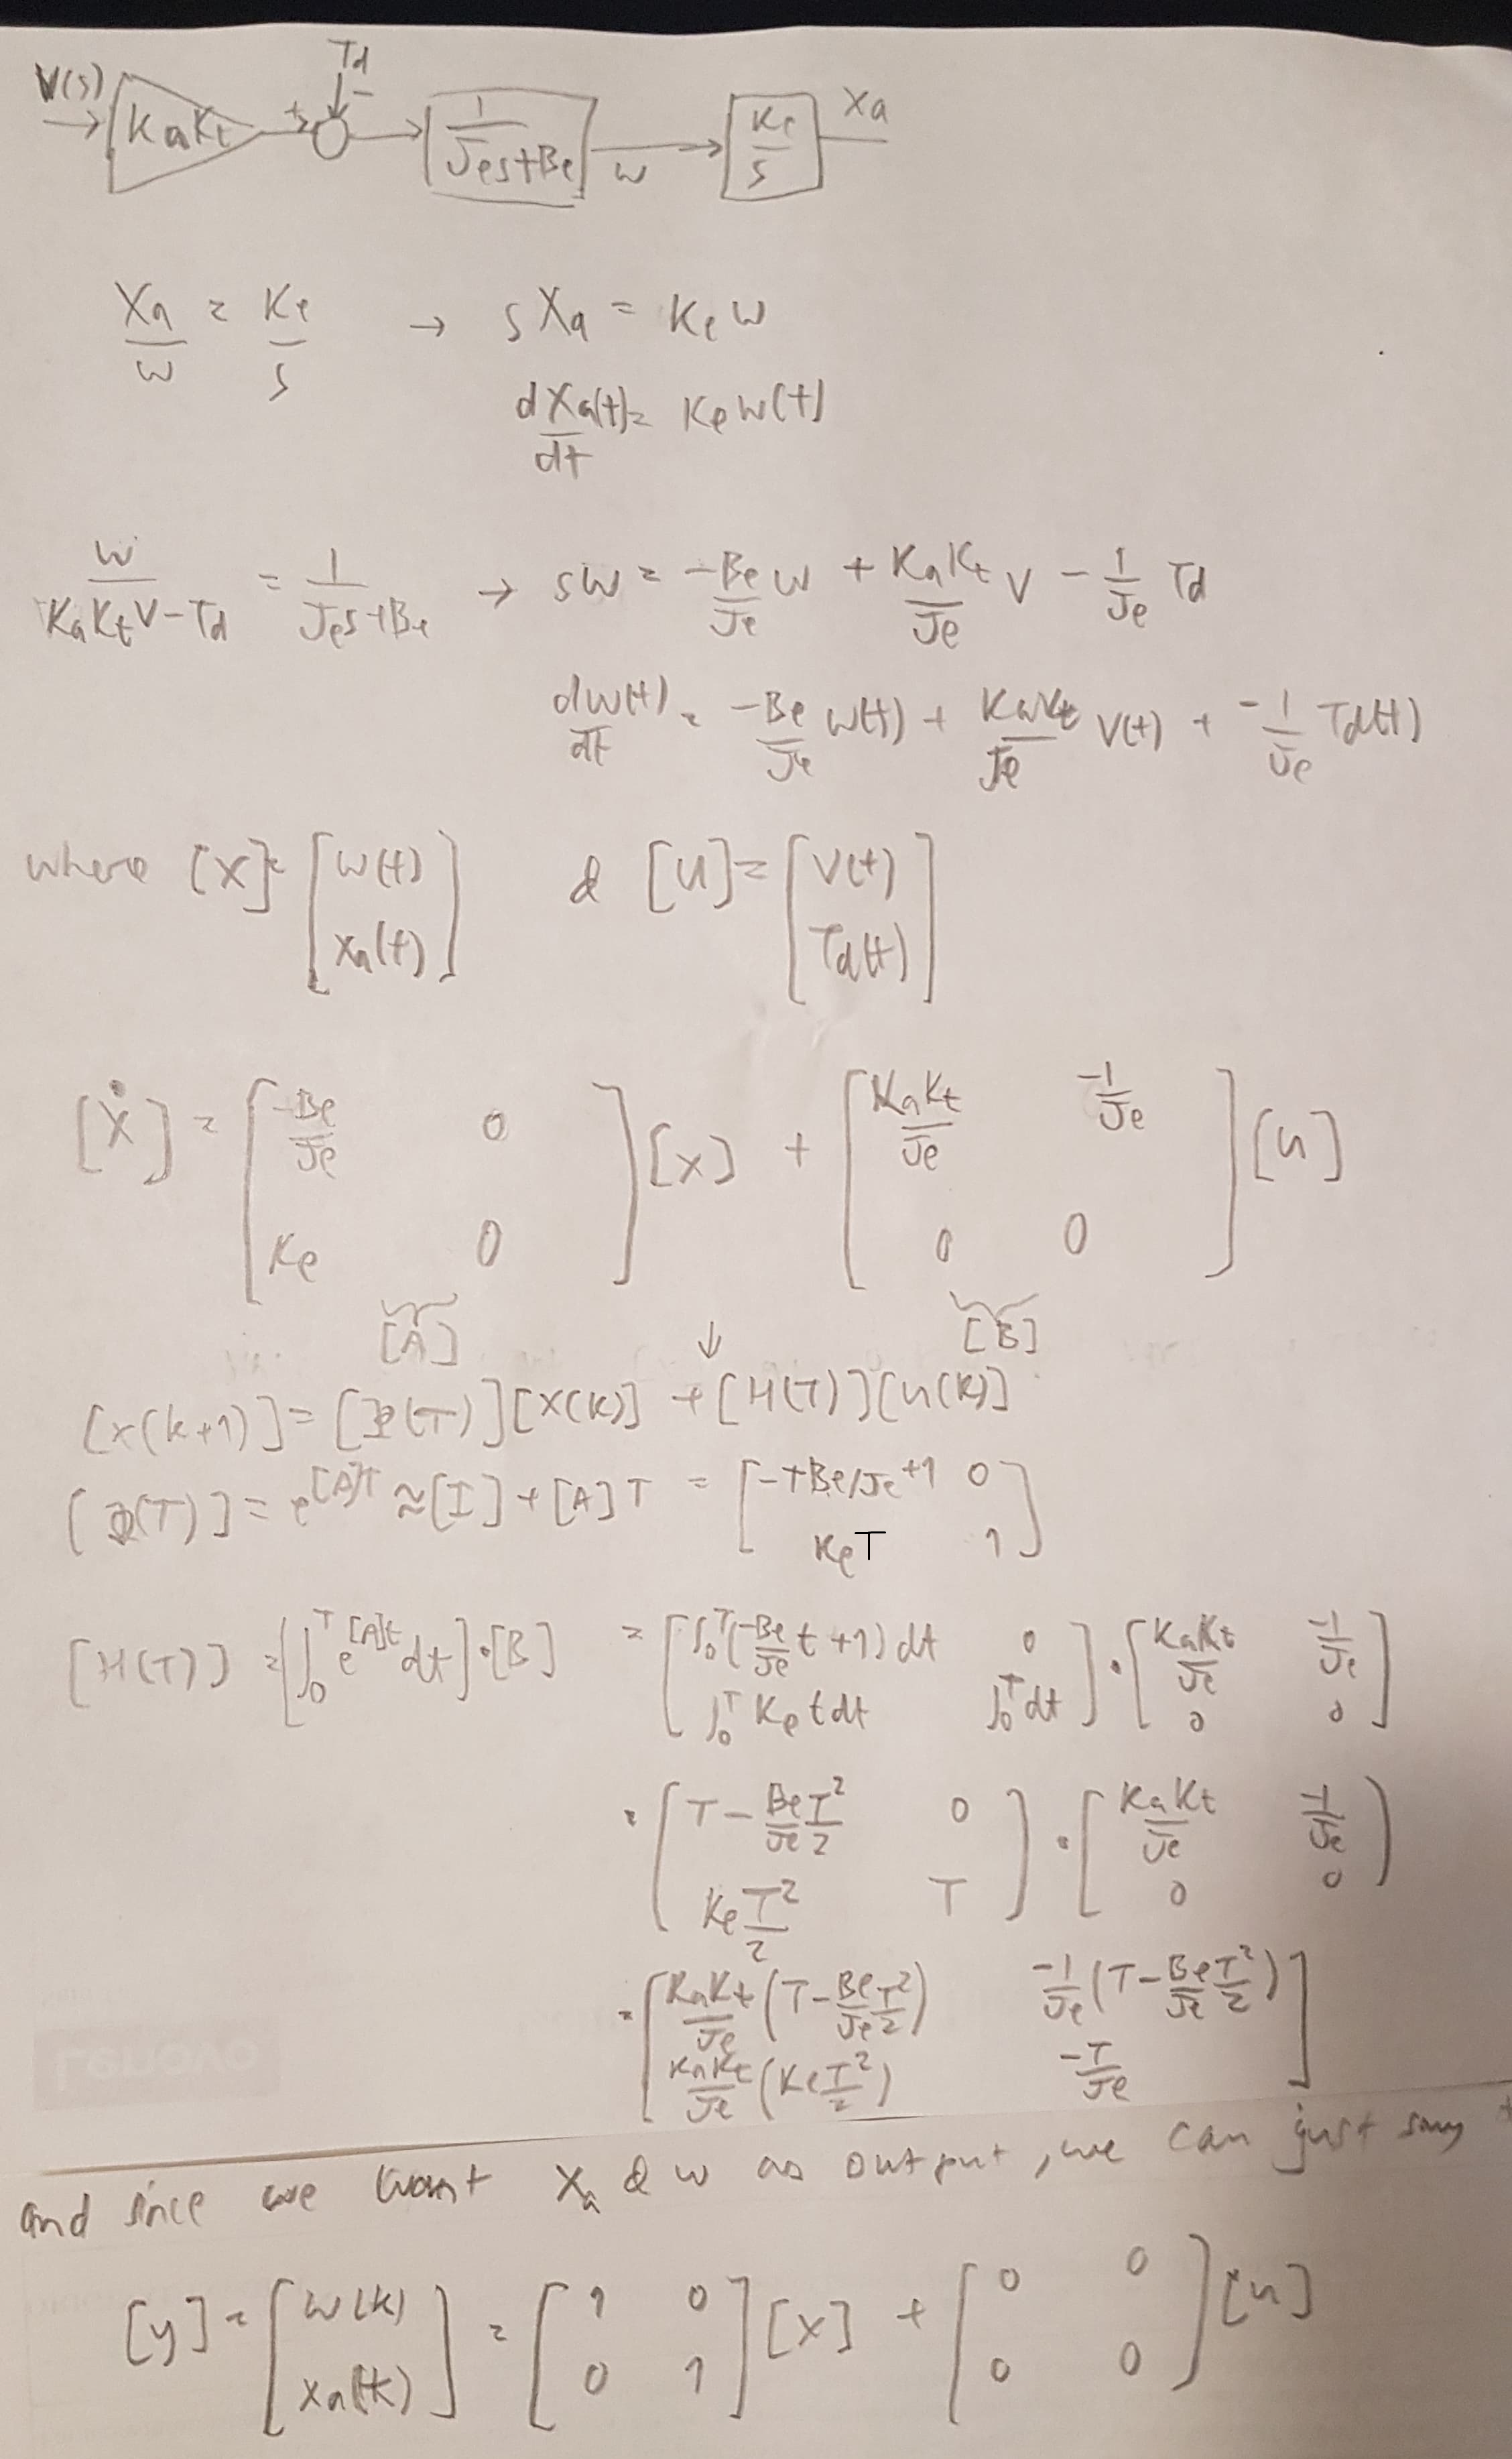 Td
V(s) KaKt + - 1/(Jes+Be) w Ke/s Xa
Xa/w = Ke/s → sXa = Ke w
dXa(t)/dt = Ke w(t)
w/(KaKtV-Td) = 1/(Jes+Be) → sw = -Be/Je w + KaKt/Je V - 1/Je Td
dw(t)/dt = -Be/Je w(t) + KaKt/Je V(t) + -1/Je Td(t)
where [x] = [w(t) xa(t)] & [u] = [V(t) Td(t)]
[ẋ] = [-Be/Je 0 Ke 0] [x] + [KaKt/Je -1/Je 0 0] [u]
[A] ↓ [B]
[x(k+1)] = [Φ(T)][x(k)] + [H(T)][u(k)]
[Φ(T)] = e^[A]T ≈ [I] + [A]T = [-TBe/Je+1 0 KeT 1]
[H(T)] = [∫₀ᵀ e^[A]t dt]·[B] = [∫₀ᵀ(-Be/Je t+1)dt 0 ∫₀ᵀ Ke t dt ∫₀ᵀ dt] · [KaKt/Je -1/Je 0 0]
= [T - Be/Je T²/2 0 Ke T²/2 T] · [KaKt/Je -1/Je 0 0]
= [KaKt/Je (T - Be/Je T²/2) -1/Je (T - Be/Je T²/2) KaKt/Je (Ke T²/2) -T/Je]
and since we want xa & w as output, we can just say
[y] = [w(k) xa(k)] = [1 0 0 1] [x] + [0 0 0 0] [u]
Lenovo